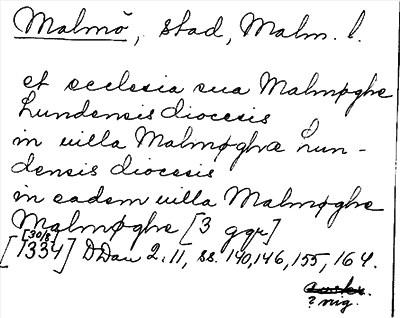 Malmö, stad, Malm. l.
et ecclesia sua Malmøghe
Lundensis diocesis
in uilla Malmøghæ Lun-
densis diocesis
in eadem uilla Malmøghe
Malmøghe [3 ggr]
[30/8]
[1334] DDan 2. 11, ss. 140, 146, 155, 164.
? nig.